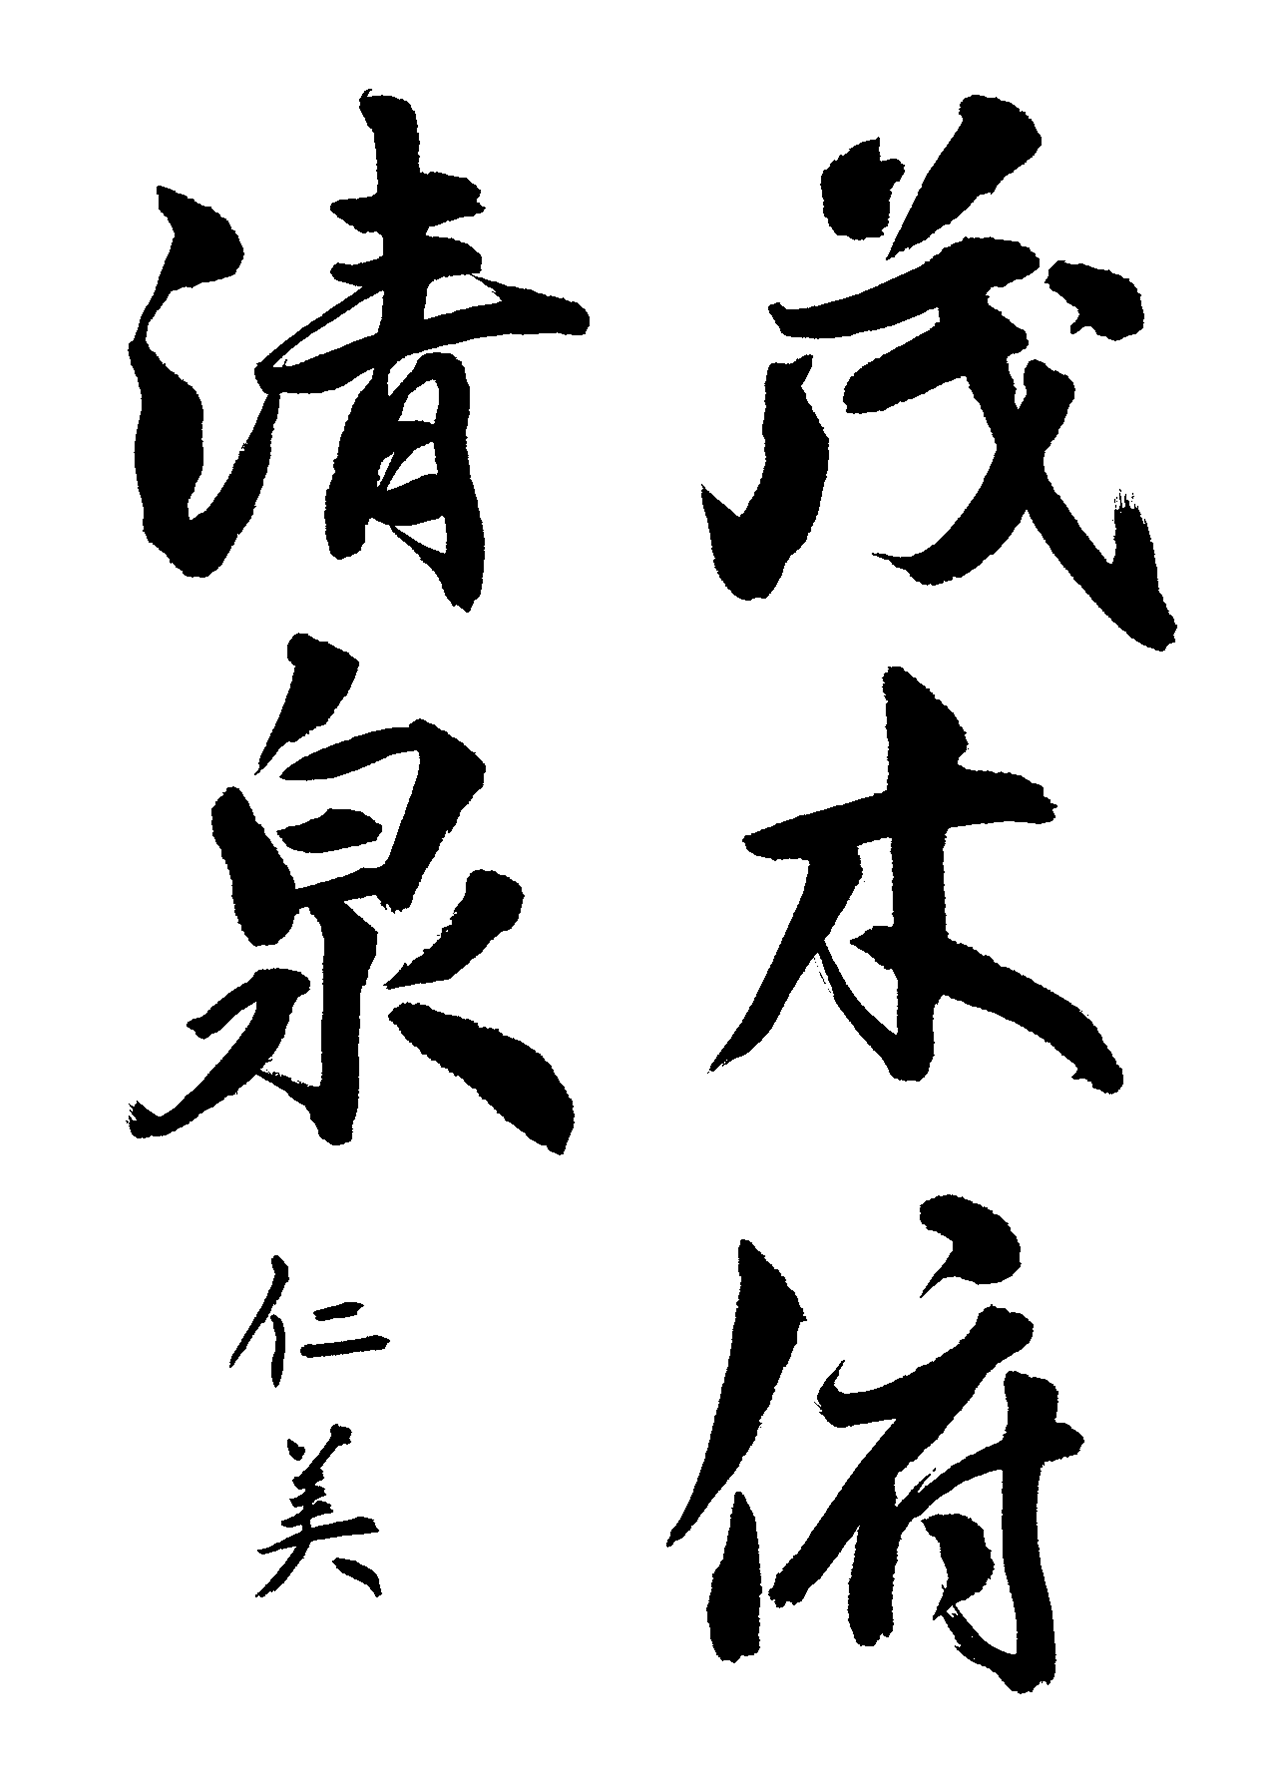 茂木俯
清泉
仁美